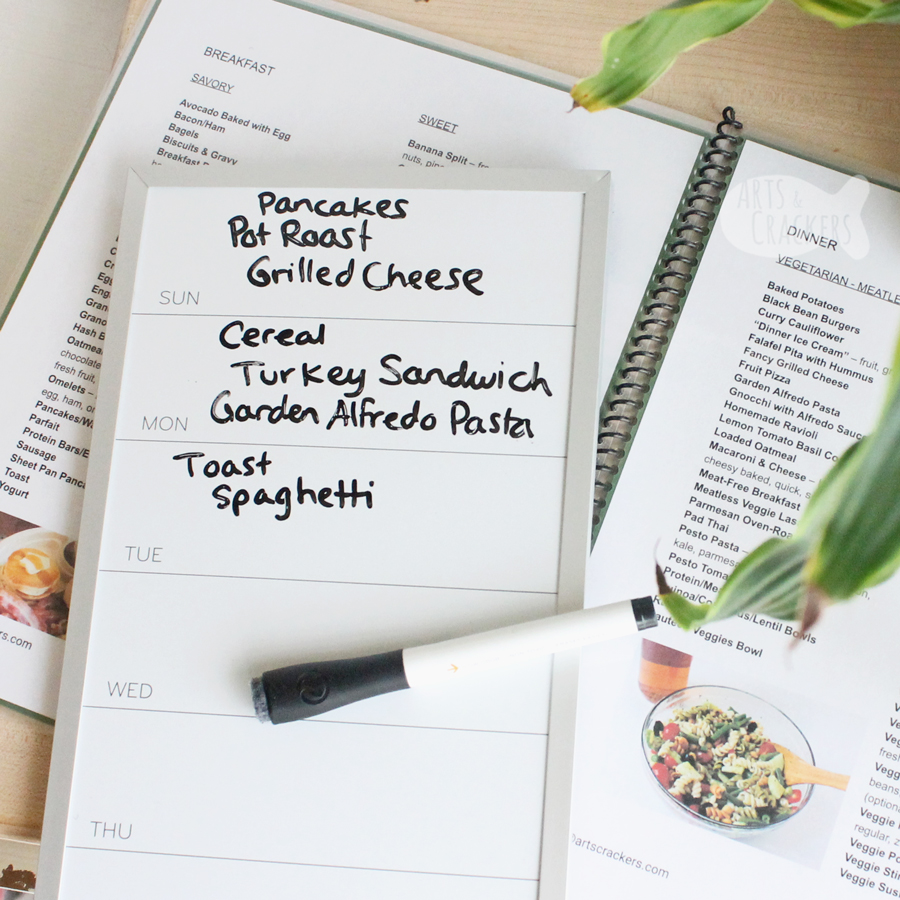 BREAKFAST
SAVORY
Avocado Baked with Egg
Bacon/Ham
Bagels
Biscuits & Gravy
Breakfast
SWEET
Banana Split –
nuts,
Hash B
Oatmea
chocolate
fresh fruit,
Omelets –
egg, ham, or
Pancakes/Wa
Parfait
Protein Bars/E
Sausage
Sheet Pan Panca
Toast
Yogurt
rs.com
Pancakes
Pot Roast
Grilled Cheese
SUN
Cereal
Turkey Sandwich
Garden Alfredo Pasta
MON
Toast
Spaghetti
TUE
WED
THU
ARTS &
CRACKERS
DINNER
VEGETARIAN - MEATLE
Baked Potatoes
Black Bean Burgers
Curry Cauliflower
"Dinner Ice Cream" – fruit,
Falafel Pita with Hummus
Fancy Grilled Cheese
Fruit Pizza
Garden Alfredo Pasta
Gnocchi with Alfredo Sauce
Homemade Ravioli
Lemon Tomato Basil
Loaded Oatmeal
Macaroni & Cheese –
cheesy baked, quick, s
Meat-Free Breakfast
Meatless Veggie Las
Parmesan Oven-Roa
Pad Thai
Pesto Pasta –
kale, parmes
Pesto Toma
Protein/Me
/Lentil Bowls
Veggies Bowl
artscrackers.com
fresh
Vegg
beans,
(optiona
Veggie
regular, z
Veggie Po
Veggie Stir
Veggie Sus